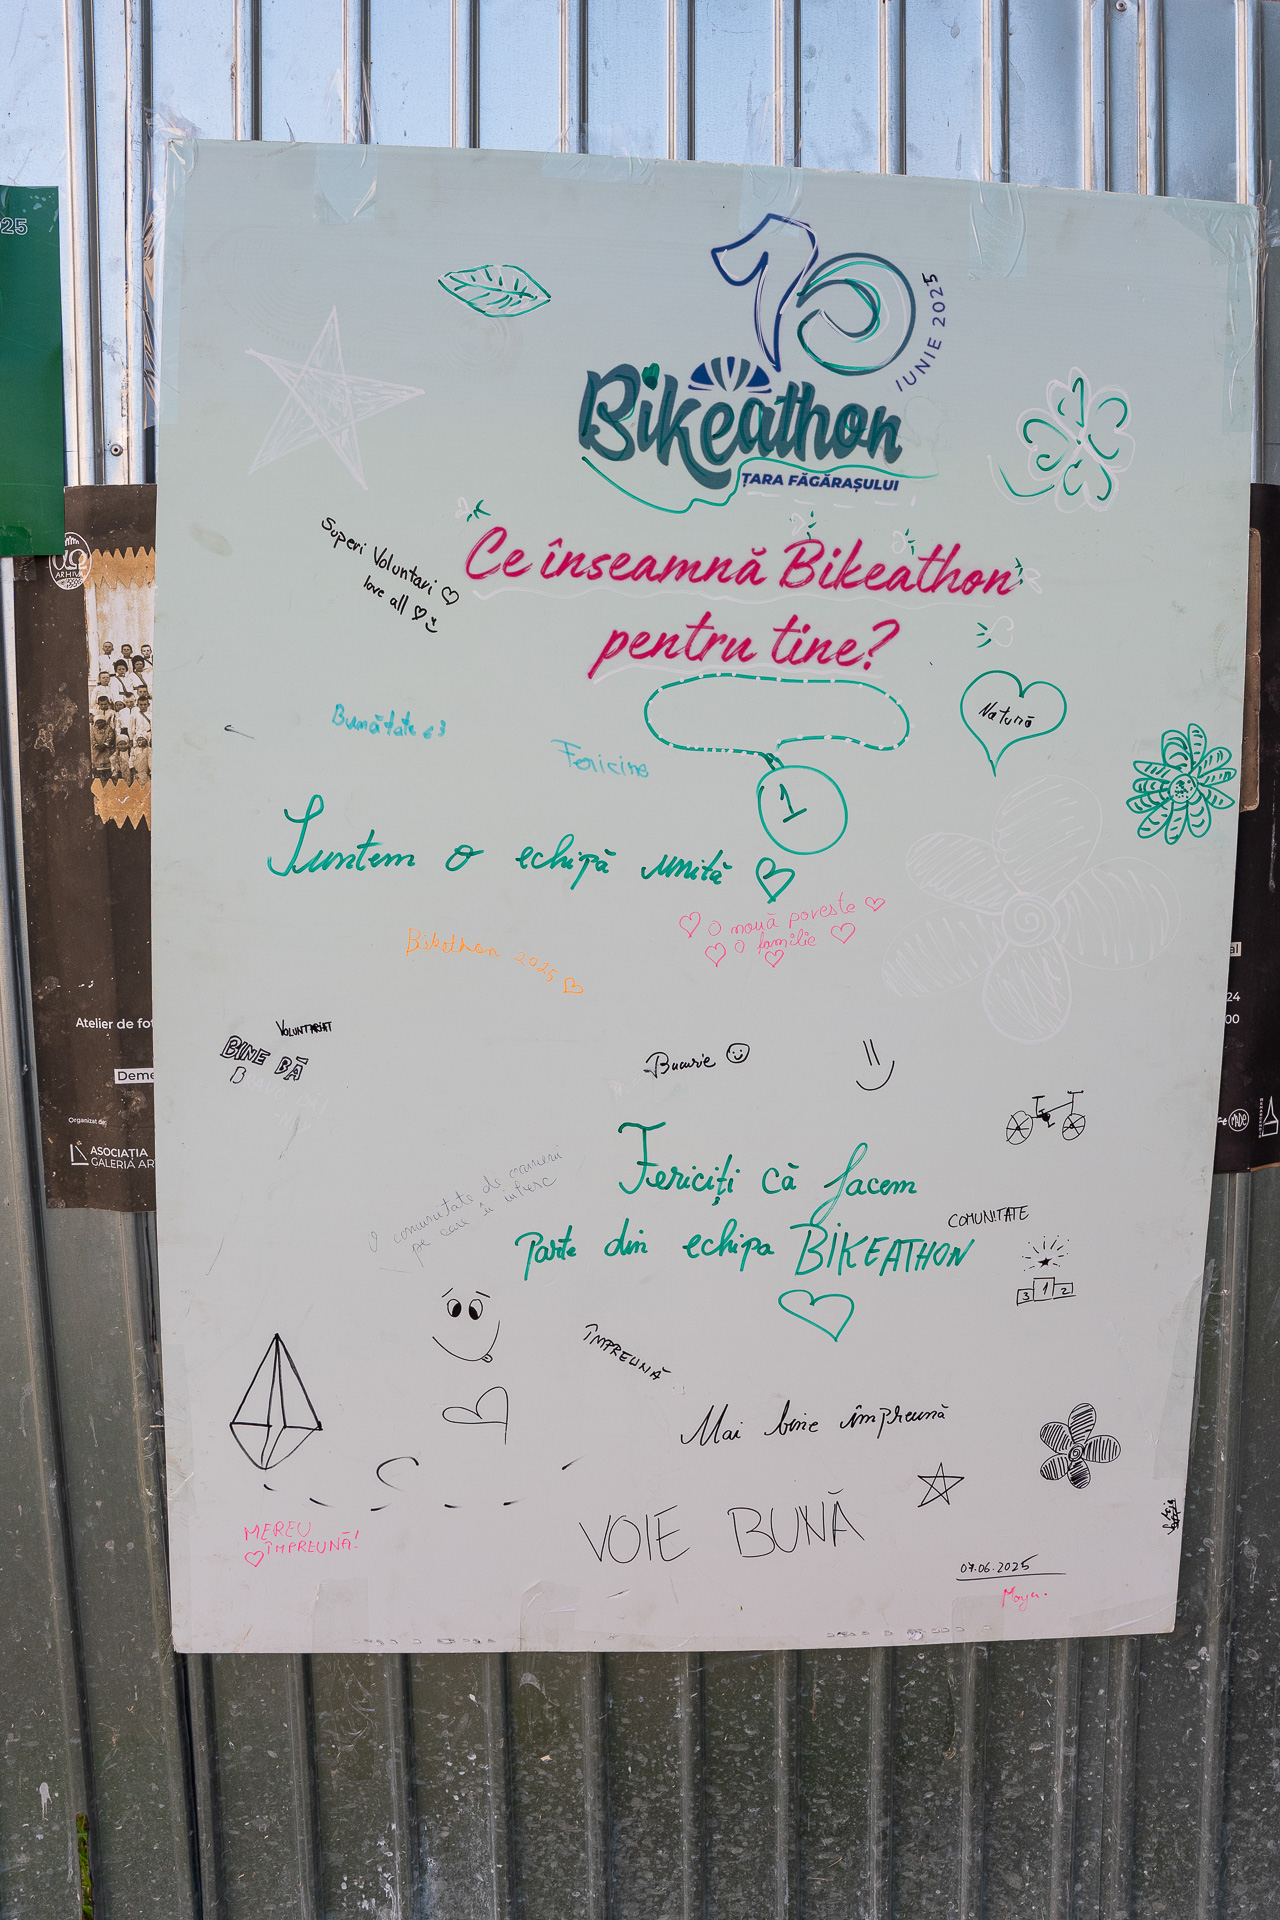 025
10
IUNIE 2025
Bikeathon
ȚARA FĂGĂRAȘULUI
Superi Voluntari
love all
Ce înseamnă Bikeathon
pentru tine?
ARHIVA
Natură
Bunătate <3
Fericire
1
Suntem o echipă unită
O nouă poveste
O familie
Bikethon 2025
al
24
00
Atelier de fot
VOLUNTARIAT
BINE BĂ
B
Deme
Bucurie
Organizat de:
ASOCIAȚIA
GALERIA AR
MADE
O comunitate de oameni
pe care îi iubesc
Fericiți că facem
Parte din echipa BIKEATHON
COMUNITATE
3 1 2
ÎMPREUNĂ
Mai bine împreună
MEREU
ÎMPREUNĂ!
VOIE BUNĂ
07.06.2025